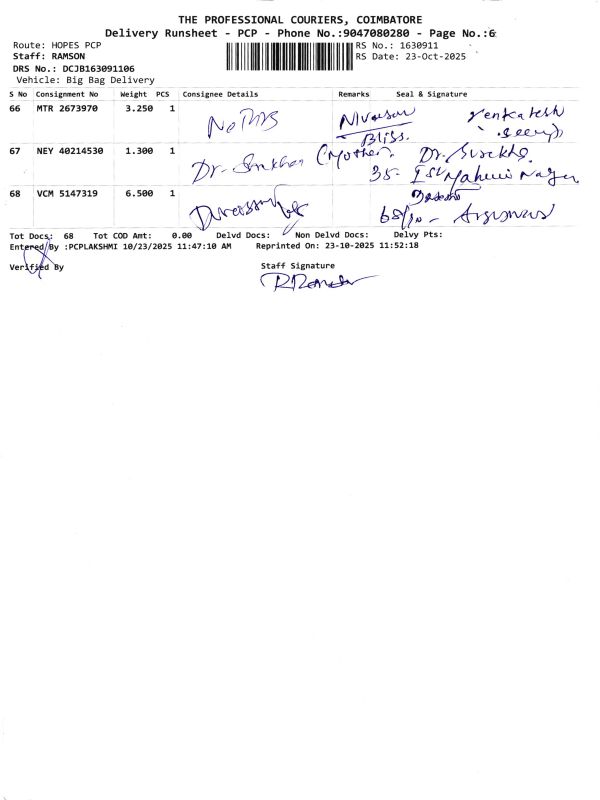 THE PROFESSIONAL COURIERS, COIMBATORE
Delivery Runsheet - PCP - Phone No.:9047080280 - Page No.:6
Route: HOPES PCP
RS No.: 1630911
Staff: RAMSON
RS Date: 23-Oct-2025
DRS No.: DCJB163091106
Vehicle: Big Bag Delivery
S No Consignment No Weight PCS Consignee Details Remarks Seal & Signature
66 MTR 2673970 3.250 1 Venkatesh
Bliss.
67 NEY 40214530 1.300 1 Dr. (Mother). Dr.
35- Nagar
68 VCM 5147319 6.500 1
Tot Docs: 68 Tot COD Amt: 0.00 Delvd Docs: Non Delvd Docs: Delvy Pts:
Entered By :PCPLAKSHMI 10/23/2025 11:47:10 AM Reprinted On: 23-10-2025 11:52:18
Verified By
Staff Signature